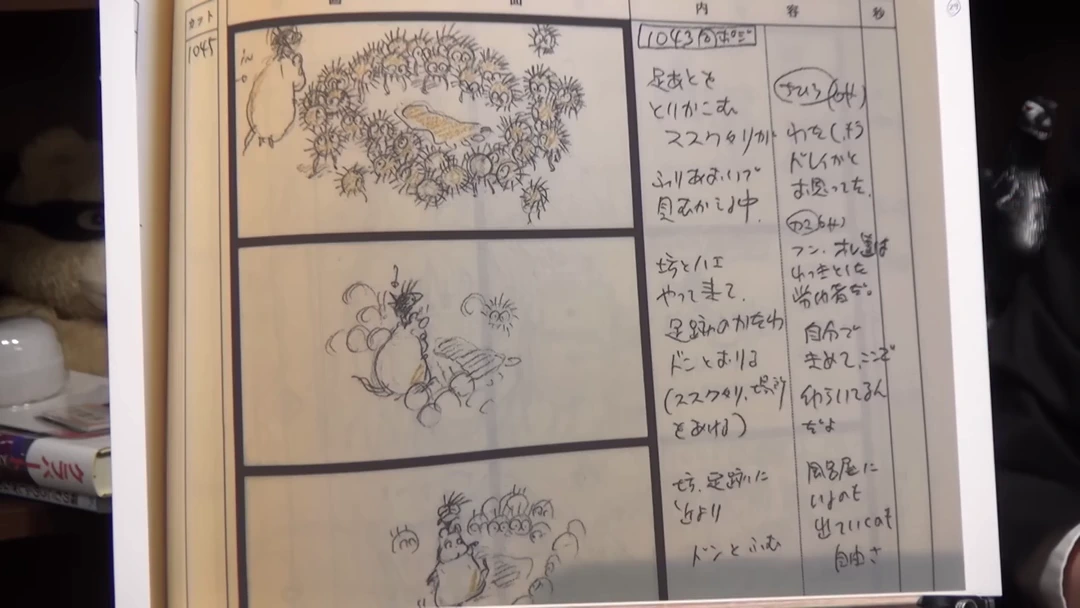 カット
画
面
内
容
秒
1045
in
1043のポジ
足あとを
とりかこむ
ススワタリが
ふりあおいで
坊とハエ
やって来て、
足跡のかたわ
ドンとおりる
(ススワタリ、場所
をあける)
坊、足跡に
近より
ドンとふむ
ちひろ(OFF)
わたし、もう
ドレイかと
お思ってた。
フン、オレ達は
れっきとした
労働者だ。
自分で
きめて、ここで
働らいてるん
だよ
風呂屋に
いるのも
出ていくのも
自由さ